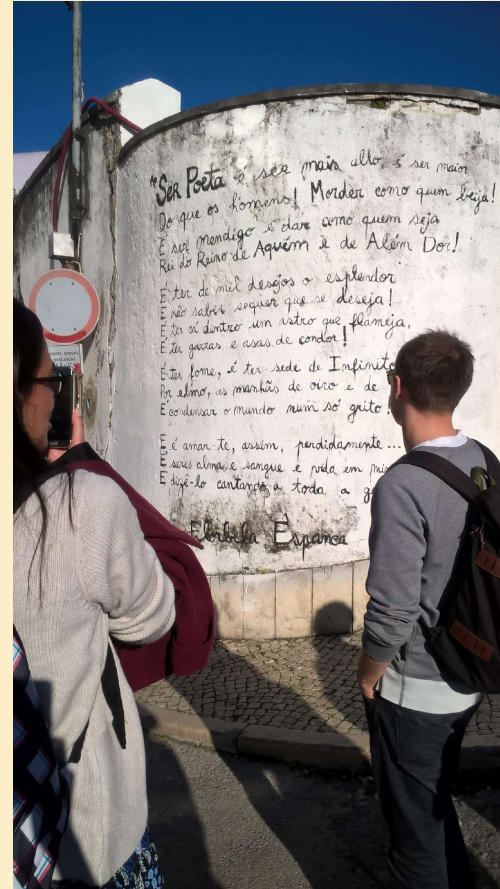 "SER POETA é ser mais alto, é ser maior
Do que os homens! Morder como quem beija!
É ser mendigo e dar como quem seja
Rei do Reino de Aquém e de Além Dor!
É ter de mil desejos o esplendor
E não saber sequer que se deseja!
É ter cá dentro um astro que flameja,
É ter garras e asas de condor!
É ter fome, é ter sede de Infinito
Por elmo, as manhãs de oiro e de
É condensar o mundo num só grito!
E é amar-te, assim, perdidamente...
É seres alma e sangue e vida em mim
E dizê-lo cantando a toda a
Florbela Espanca